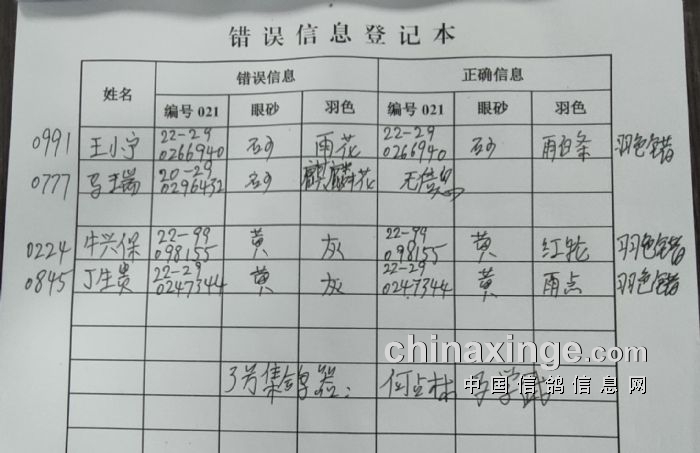 错误信息登记本
姓名 错误信息 正确信息
编号 021 眼砂 羽色 编号 021 眼砂 羽色
0991 王小宁 22-29 0266940 砂 雨花 22-29 0266940 砂 雨白条 羽色错
0777 马玉瑞 20-29 0296432 砂 麒麟花 无信息
0224 牛兴保 22-99 098155 黄 灰 22-99 098155 黄 红轮 羽色错
0845 丁生贵 22-29 0247344 黄 灰 22-29 0247344 黄 雨点 羽色错
chinaxinge.com
中国信鸽信息网
3号集鸽器: 何占林 马学